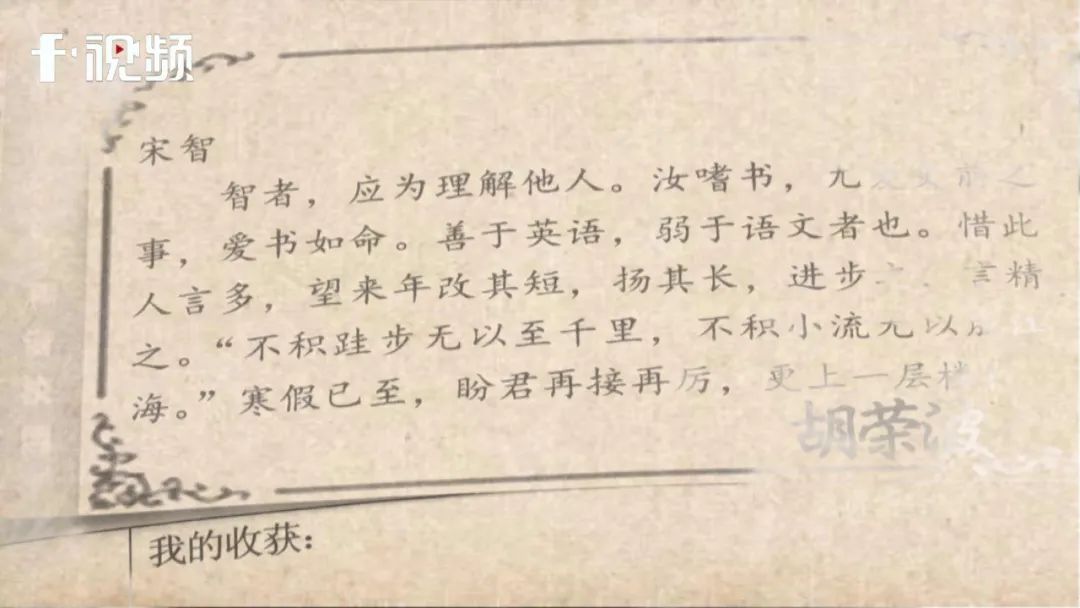 视频
宋智
智者，应为理解他人。汝嗜书，凡
事，爱书如命。善于英语，弱于语文者也。惜此
人言多，望来年改其短，扬其长，进步 言精
之。“不积跬步无以至千里，不积小流无以
海。”寒假已至，盼君再接再厉，更上一层楼
胡荣波
我的收获：